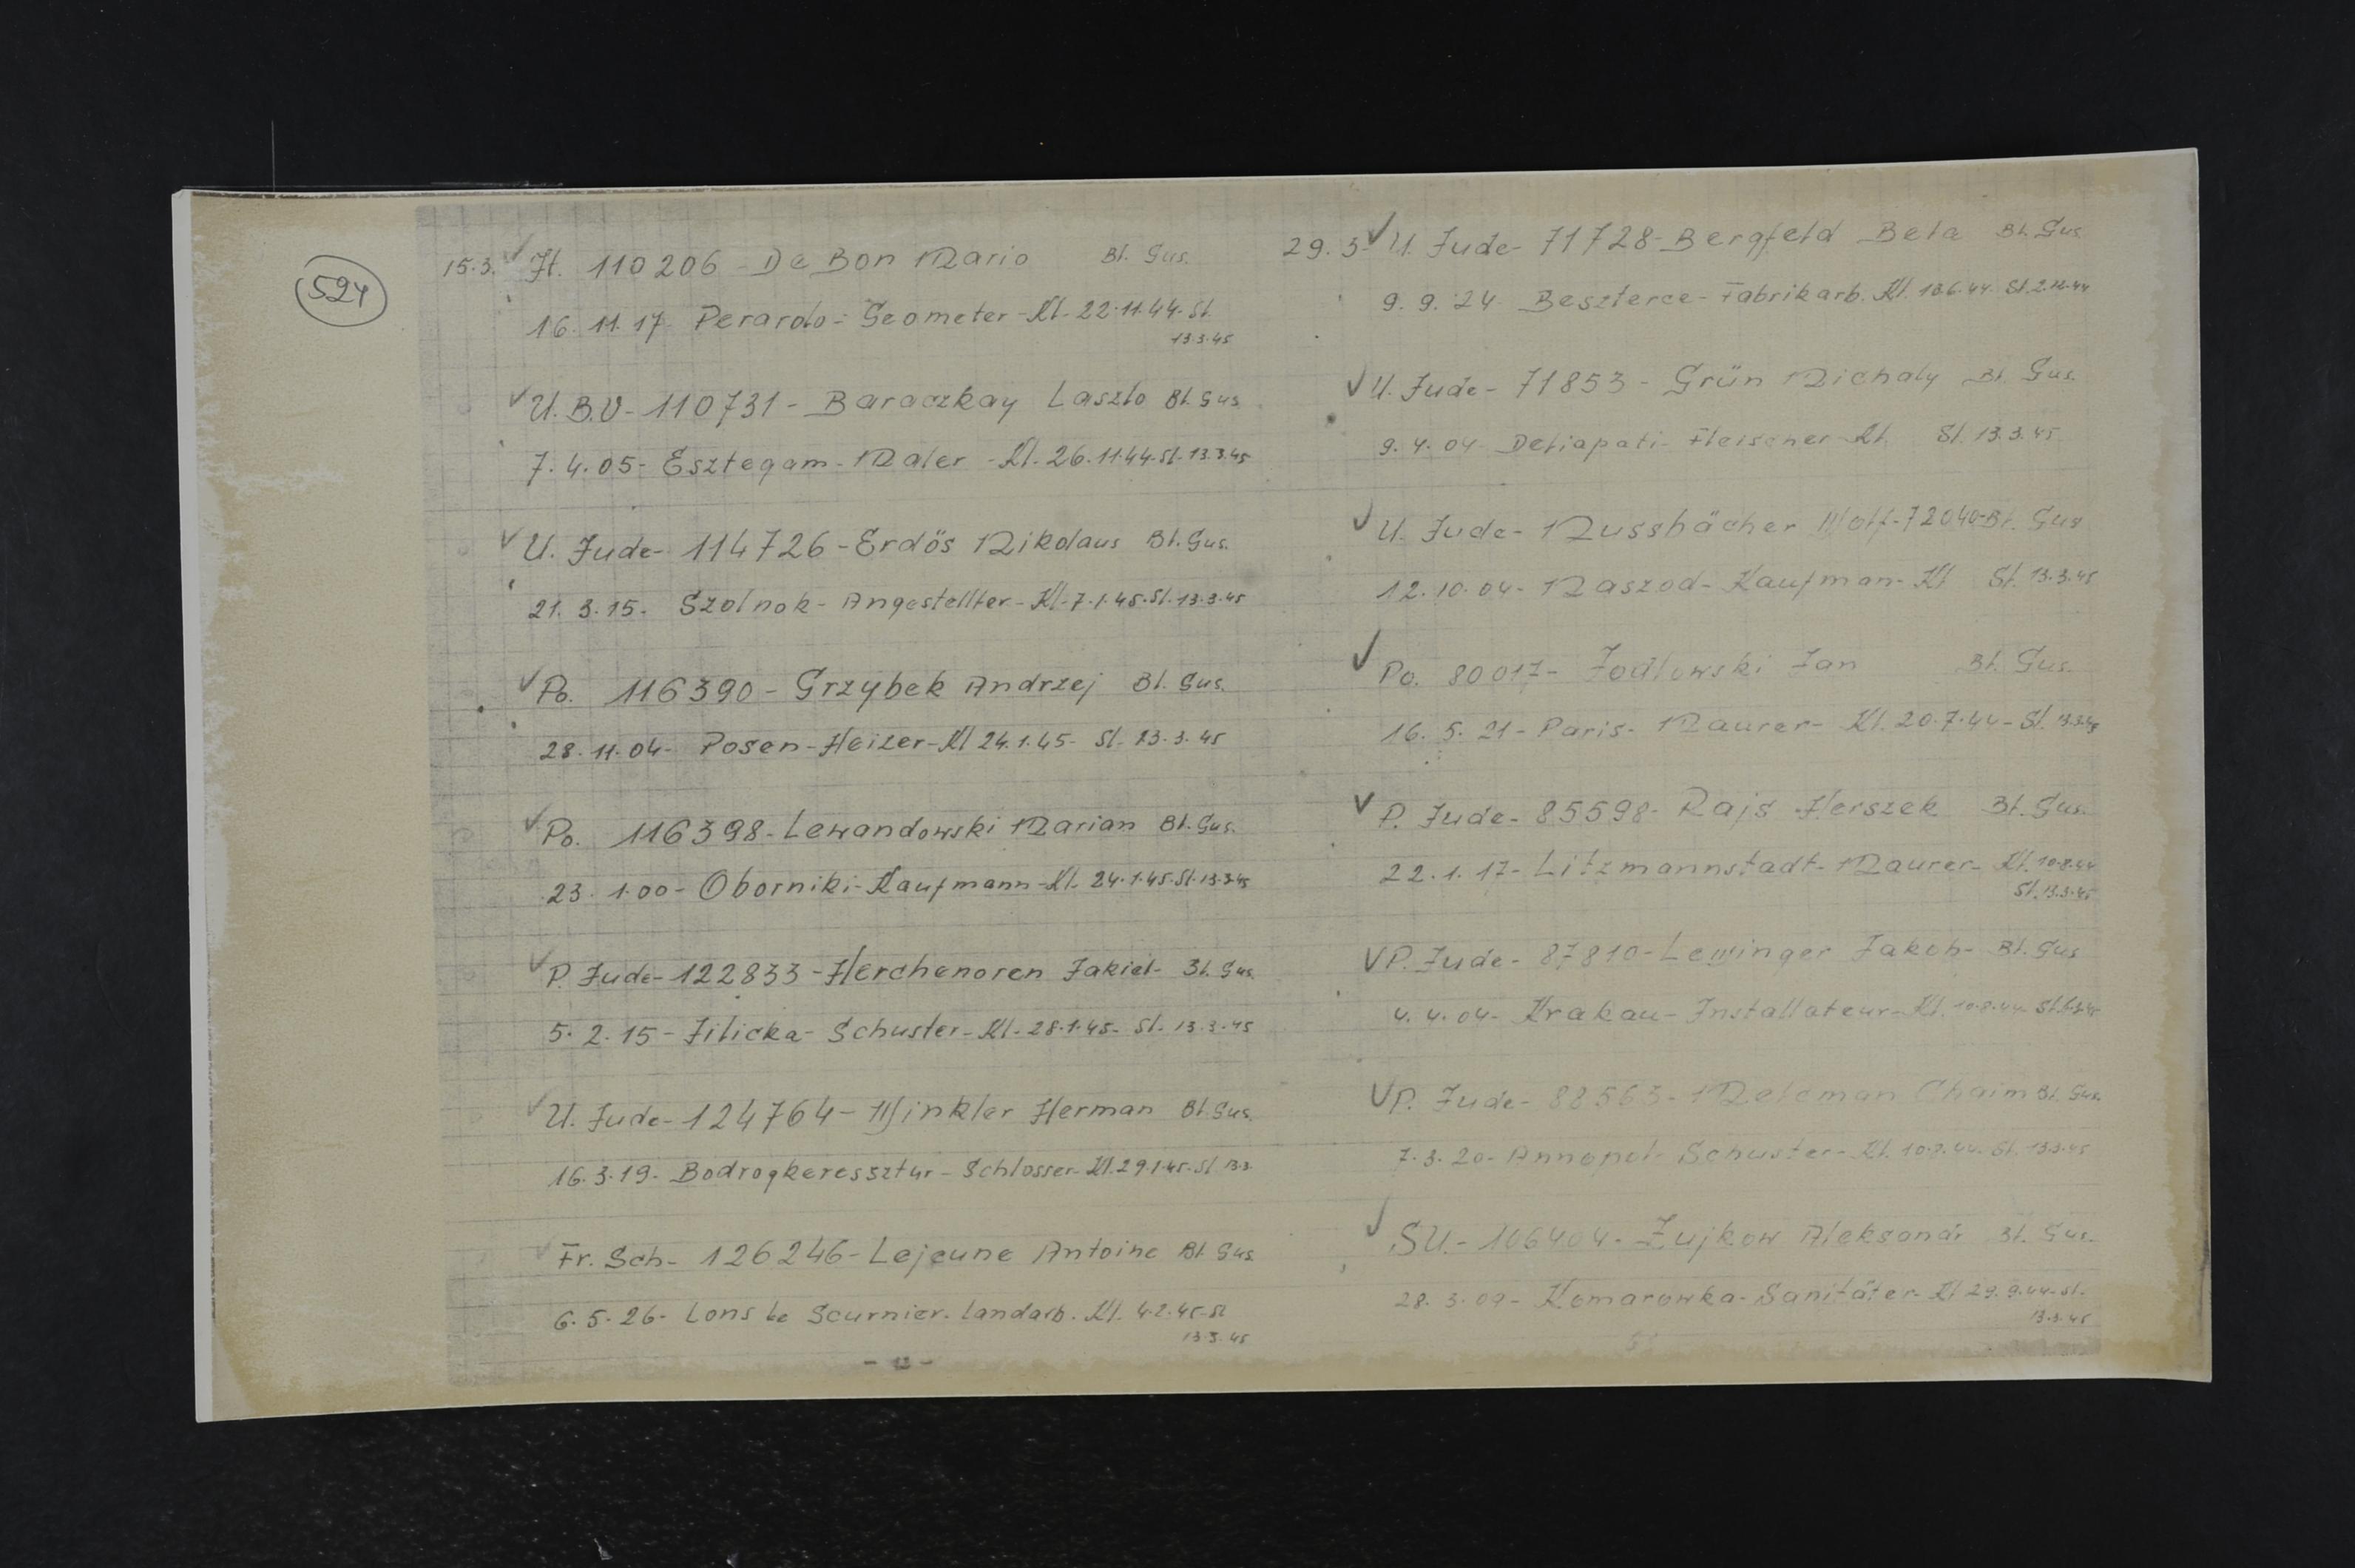 524
15.3. ✓ It. 110206 - De Bon Mario Bl. Gus.
16.11.17. Perarolo - Geometer - Kl. 22.11.44. Sl.
13.3.45
✓ U. B.V - 110731 - Baraczkay Laszlo Bl. Gus.
7.4.05 - Esztegam - Maler - Kl. 26.11.44. Sl. 13.3.45
✓ U. Jude - 114726 - Erdös Nikolaus Bl. Gus.
21.3.15. Szolnok - Angestellter - Kl. 7.1.45. Sl. 13.3.45
✓ Po. 116390 - Grzybek Andrzej Bl. Gus.
28.11.04 - Posen - Heizer - Kl 24.1.45 - Sl. 13.3.45
✓ Po. 116398 - Lewandowski Marian Bl. Gus.
23.1.00 - Oborniki - Kaufmann - Kl. 24.1.45. Sl. 13.3.45
✓ P. Jude - 122833 - Herchenoren Jakiel - Bl. Gus.
5.2.15 - Jilicka - Schuster - Kl - 28.1.45 - Sl. 13.3.45
✓ U. Jude - 124764 - Winkler Herman Bl. Gus.
16.3.19. Bodrogkeressztur - Schlosser - Kl. 29.1.45. Sl 13.3.
✓ Fr. Sch - 126246 - Lejeune Antoine Bl. Gus.
6.5.26 - Lons le Scurnier. landarb. Kl. 4.2.45 - Sl
13.3.45
29.3 - ✓ U. Jude - 71728 - Bergfeld Bela Bl. Gus
9.9.24. Beszterce - Fabrikarb. Kl. Sl.
✓ U. Jude - 71853 - Grün Michaly Bl. Gus.
9.4.04 - Fleischer - Kl. Sl. 13.3.45
✓ U. Jude - Nussbächer Wolf - 72040 - Bl. Gus
12.10.04 - Naszod - Kaufman - Kl Sl. 13.3.45
✓ Po. 80017 - Jodlowski Jan Bl. Gus.
16.5.21 - Paris - Maurer - Kl. 20.7.44 - Sl. 13.3.45
✓ P. Jude - 85598 - Rajs Herszek Bl. Gus.
22.1.17 - Litzmannstadt - Maurer - Kl. 10.8.44
Sl. 13.3.45
✓ P. Jude - 87810 - Lewinger Jakob - Bl. Gus
4.4.04 - Krakau - Installateur - Kl. 10.8.44 Sl.
✓ P. Jude - 88563 - Chaim Bl. Gus.
7.3.20 - Annopol - Schuster - Kl. 10.8.44. Sl. 13.3.45
✓ SU. - 106404 - Zujkow Aleksandr Bl. Gus.
28.3.09 - Komarowka - Sanitäter - Kl 29.9.44 - Sl.
13.3.45